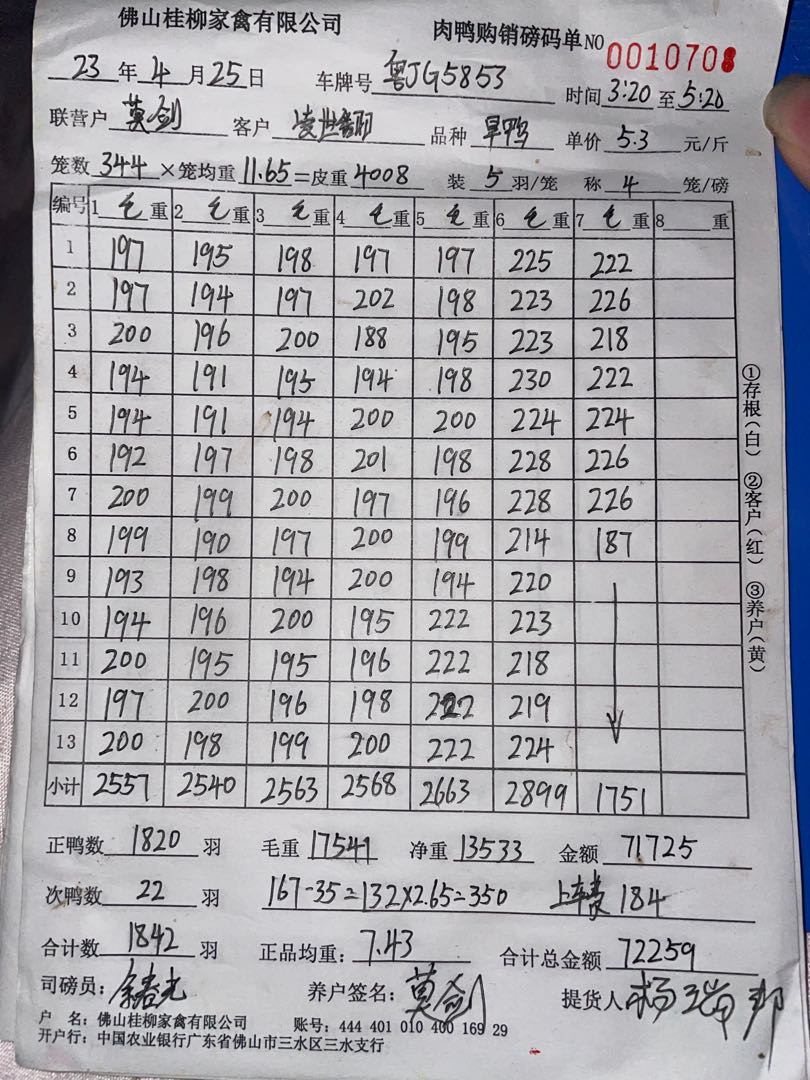 佛山桂柳家禽有限公司 肉鸭购销磅码单 NO 0010708
23 年 4 月 25 日 车牌号 粤JG5853 时间 3:20 至 5:20
联营户 莫剑 客户 品种 旱鸭 单价 5.3 元/斤
笼数 344 ×笼均重 11.65 =皮重 4008 装 5 羽/笼 称 4 笼/磅
编号 1 毛 重 2 毛 重 3 毛 重 4 毛 重 5 毛 重 6 毛 重 7 毛 重 8 重
1 197 195 198 197 197 225 222
2 197 194 197 202 198 223 226
3 200 196 200 188 195 223 218
4 194 191 195 194 198 230 222
5 194 191 194 200 200 224 224
6 192 197 198 201 198 228 226
7 200 199 200 197 196 228 226
8 199 190 197 200 199 214 187
9 193 198 194 200 194 220
10 194 196 200 195 222 223
11 200 195 195 196 222 218
12 197 200 196 198 222 219
13 200 198 199 200 222 224
小计 2557 2540 2563 2568 2663 2899 1751
正鸭数 1820 羽 毛重 17541 净重 13533 金额 71725
次鸭数 22 羽 167-35=132×2.65=350 上车费 184
合计数 1842 羽 正品均重: 7.43 合计总金额 72259
司磅员: 余春光 养户签名: 莫剑 提货人 杨瑞邦
户 名: 佛山桂柳家禽有限公司 账号: 444 401 010 400 169 29
开户行: 中国农业银行广东省佛山市三水区三水支行
①存根(白) ②客户(红) ③养户(黄)